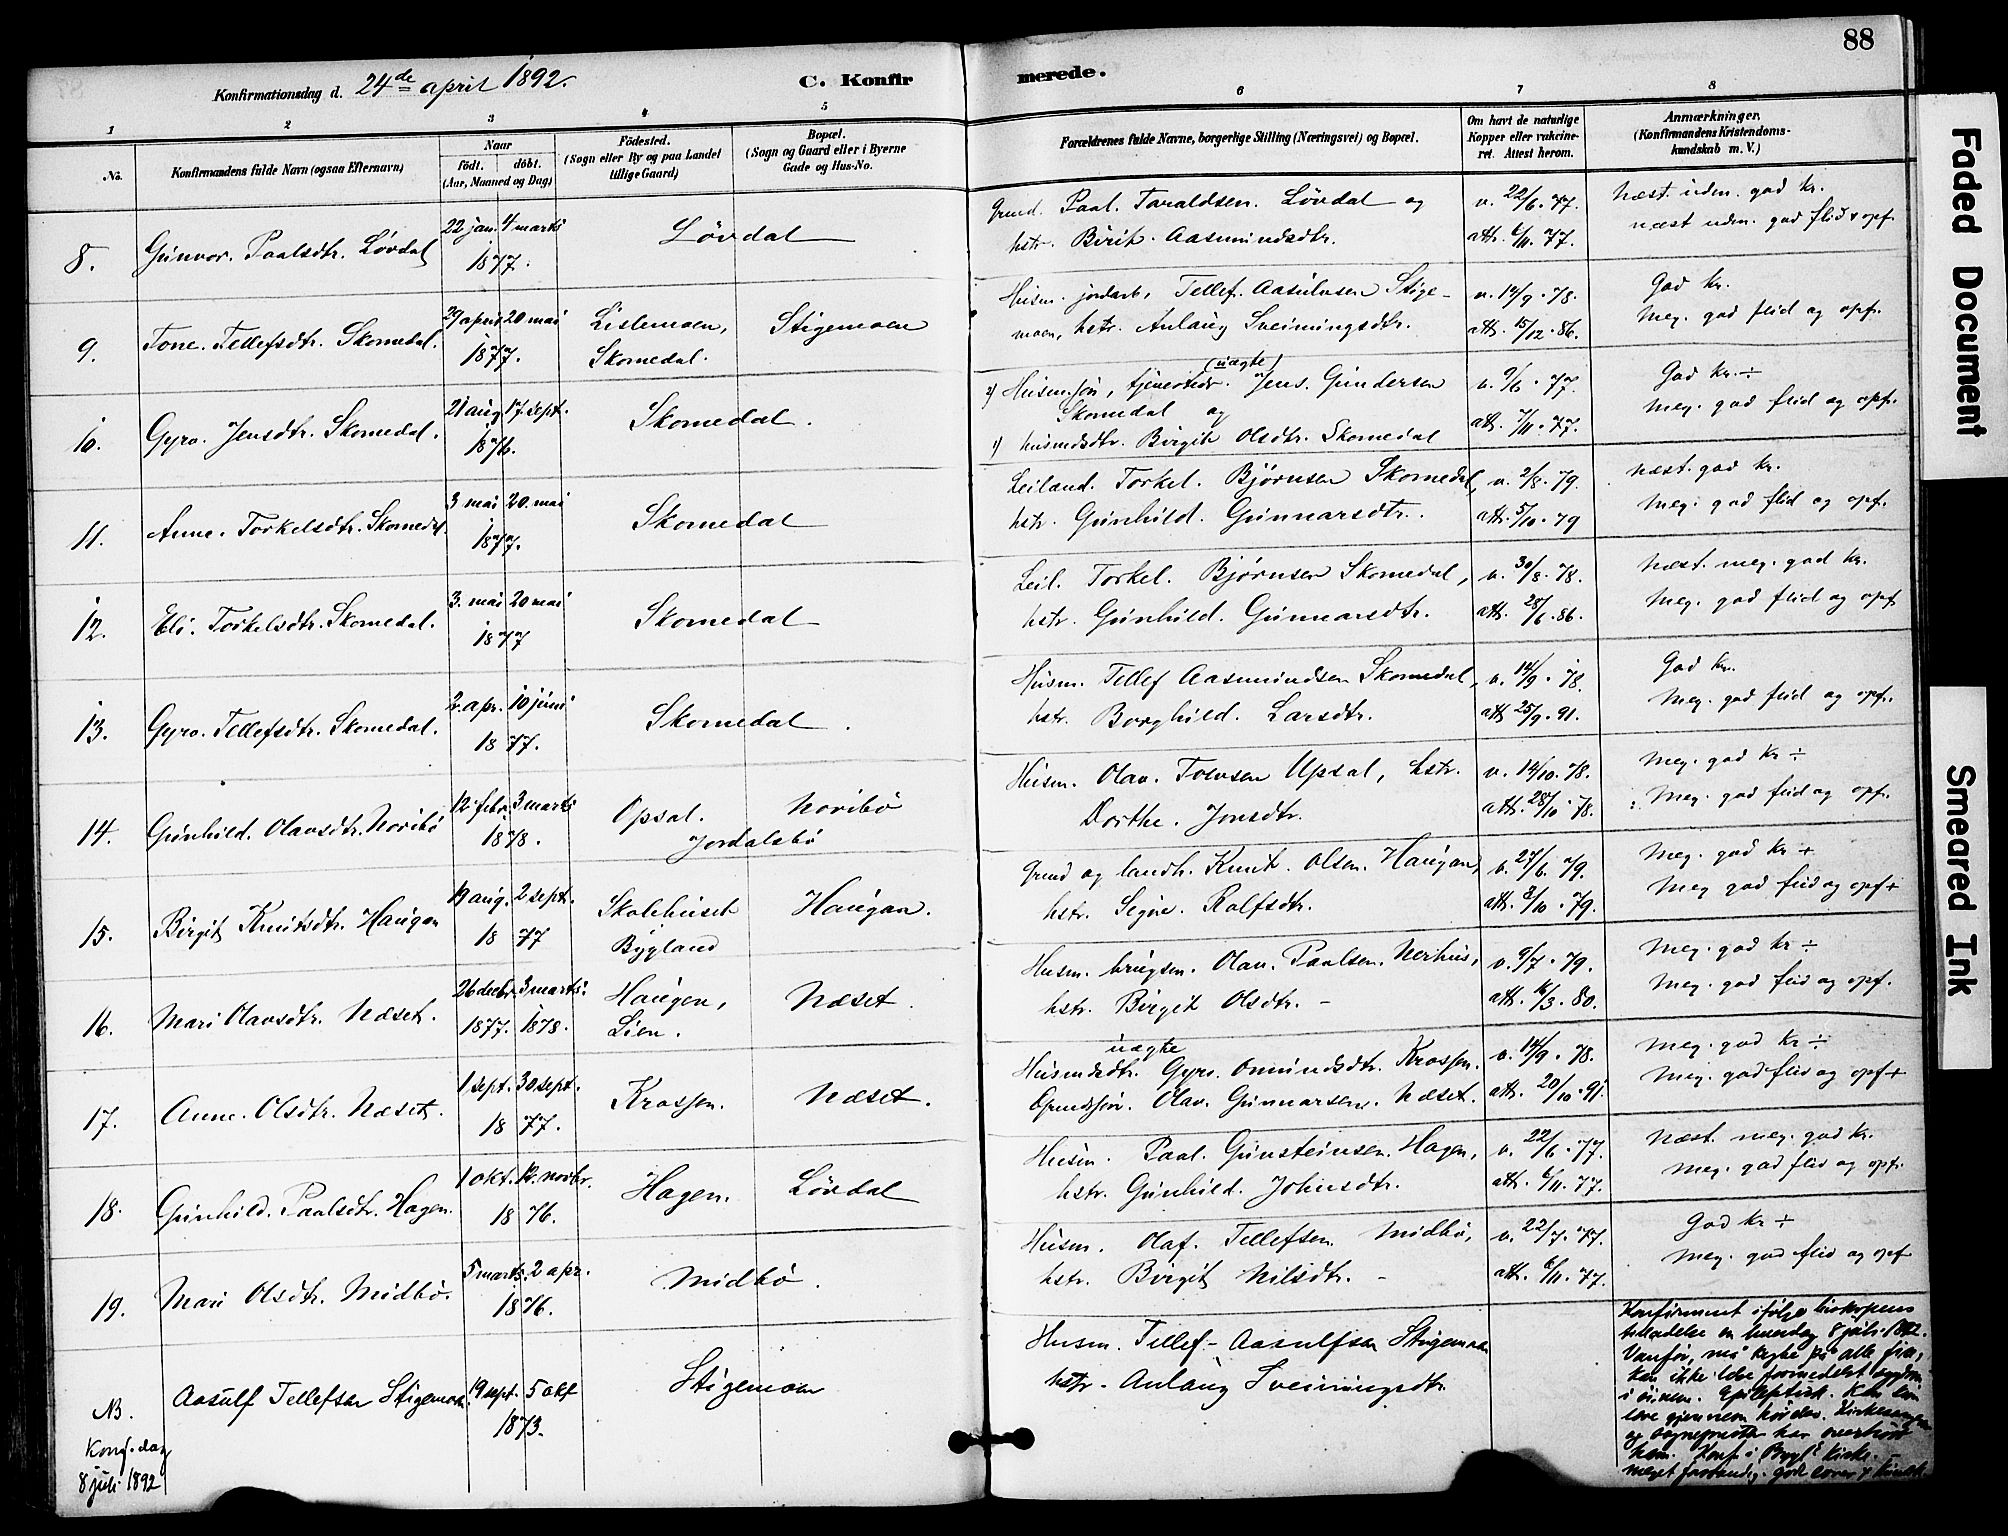 88
Konfirmationsdag d. 24de april 1892.
C. Konfirmerede.
1 2 3 4 5 6 7 8
No.
Konfirmandens fulde Navn (ogsaa Efternavn)
Naar
födt. döbt.
(Aar, Maaned og Dag)
Födested.
(Sogn eller By og paa Landet
tillige Gaard)
Bopæl.
(Sogn og Gaard eller i Byerne
Gade og Hus-No.
Forældrenes fulde Navne, borgerlige Stilling (Næringsvei) og Bopæl.
Om havt de naturlige
Kopper eller vakcine-
ret. Attest herom.
Anmærkninger.
(Konfirmandens Kristendoms-
kundskab m. V.)
8. Gunvor. Paalsdtr. Løvdal 22 jan. 4 marts 1877. Løvdal
Grund. Paal. Taraldsen. Løvdal og
hstr. Birit. Aasmundsdtr.
v. 22/6. 77.
att. 6/11. 77.
Næst. udm. god kr.
næst udm. god flid & opf.
9. Tone. Tellefsdtr. Skomedal. 29 april 20 mai 1877. Lislemoen, Skomedal. Stigemoen
Husm. jordarb, Tellef. Aasulvsen Stige-
moen, hstr. Anlaug Sveinungsdtr.
v. 14/9. 78.
att. 15/12. 86.
God kr.
Meg. god flid og opf.
10. Gyro. Jensdtr. Skomedal. 21 aug 17 sept. 1876. Skomedal.
(uægte)
2) Husm.søn, tjenestedr. Jens. Gundersen
Skomedal og
1) husmdsdtr. Birgit Olsdtr. Skomedal
v. 9/6. 77.
att. 7/11. 77.
God kr. ÷
Meg. god flid og opf.
11. Anne. Torkelsdtr. Skomedal. 3 mai 20 mai 1877. Skomedal
Leiland. Torkel. Bjørnsen Skomedal,
hstr. Gunhild. Gunnarsdtr.
v. 2/8. 79.
att. 5/10. 79
Næst. god kr.
Meg. god flid og opf.
12. Eli. Torkelsdtr. Skomedal. 3. mai 20 mai 1877 Skomedal
Leil. Torkel. Bjørnsen Skomedal,
hstr. Gunhild. Gunnarsdtr.
v. 30/8. 78.
att. 28/6. 86.
Næst. meg. god kr.
Meg. god flid og opf
13. Gyro. Tellefsdtr. Skomedal. 2. apr. 10 juni 1877. Skomedal.
Husm. Tellef Aasmundsen Skomedal,
hstr. Borghild. Larsdtr.
v. 14/9. 78.
att 25/9. 91.
God kr.
Meg. god flid og opf.
14. Gunhild. Olavsdtr. Noribø 12 febr. 3 marts 1878. Opsal. Noribø
Jordalsbø
Husm. Olav. Tovsen Upsal, hstr.
Dorthe. Jonsdtr.
v. 14/10. 78.
att. 28/10. 78.
Meg. god kr ÷
Meg. god flid og opf.
15. Birgit Knutsdtr. Haugan 19 aug. 2 sept. 1877 Skolehuset Bygland Haugan.
Grund og landh. Knut. Olsen. Haugan,
hstr. Segne. Rolfsdtr.
v. 27/6. 79.
att. 8/10. 79.
Meg. god kr +
Meg god flid og opf +
16. Mari Olavsdtr. Næset. 26 decbr. 3 marts. 1877. 1878. Haugen, Lien. Næset.
Husm. brugsm. Olav. Paalsen. Nerhus,
hstr. Birgit Olsdtr. -
v. 9/7. 79.
att. 16/3. 80.
Meg. god kr ÷
Meg. god flid og opf.
17. Anne. Olsdtr. Næset. 1 sept. 30 sept. 1877. Krossjen. Næset.
uægte
Husmdsdtr. Gyro. Omundsdtr. Krossjen.
Grundsøn. Olav. Gunnarsen. Næset.
v. 14/9. 78.
att. 20/10. 91.
Meg. god kr ÷
Meg. god flid og opf +
18. Gunhild. Paalsdtr. Hagen. 1 okt. 12. novbr. 1876. Hagen. Løvdal
Husm. Paal. Gunsteinsen. Hagen,
hstr. Gunhild. Johnsdtr.
v. 22/6. 77.
att. 6/11. 77.
Næst. meg. god kr.
Meg. god flid og opf.
19. Mari Olsdtr. Midbø. 5 marts. 2 apr. 1876. Midbø.
Husm. Olaf. Tellefsen Midbø,
hstr. Birgit Nilsdtr. -
v. 22/7. 77.
att. 6/11. 77.
God kr ÷
Meg. god flid og opf
NB. Aasulf Tellefsen Stigemoen. 19 sept. 5 okt 1873. Stigemoen
Konf. dag
8 juli 1892
Husm. Tellef - Aasulfsen Stigemoen
hstr - Anlaug Sveinungsdtr
Konfirment ifølge biskopens
tilladelse en hverdag 8 juli 1892.
Vanfør, må krybe på alle fire,
kan ikke læse formedelst sygdom
i øinene. Epileptisk.
og sogneprest har overhørt
ham. Konf. i Bygl. Kirke -
Faded Document
Smeared Ink